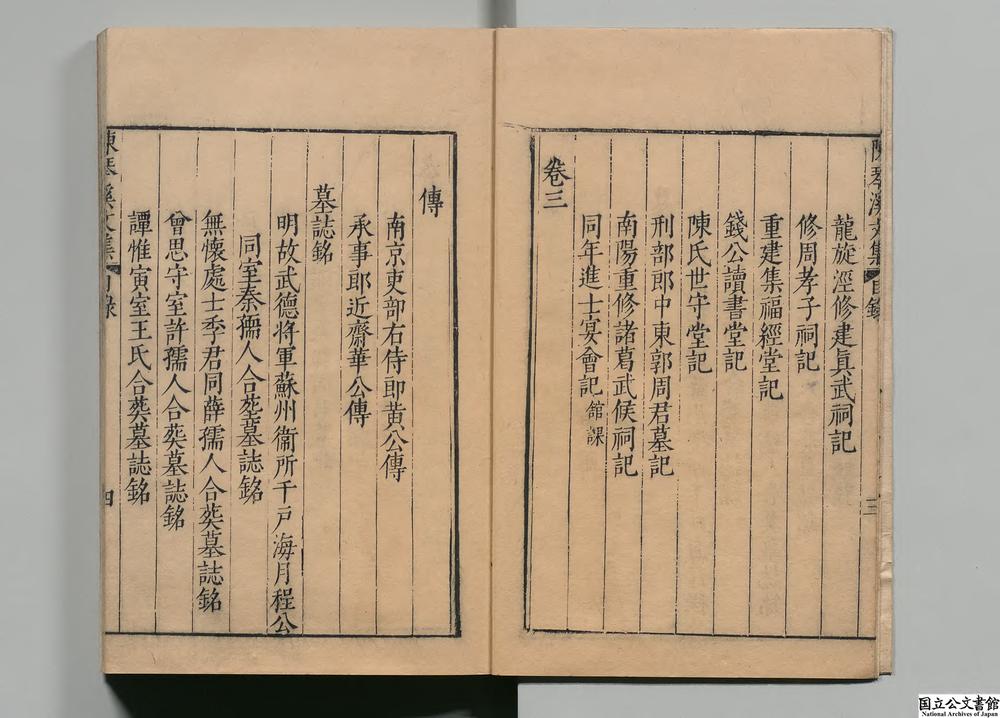 陳琴溪文集 目錄 三
龍旋涇修建眞武祠記
修周孝子祠記
重建集福經堂記
錢公讀書堂記
陳氏世守堂記
刑部郎中東郭周君墓記
南陽重修諸葛武侯祠記
同年進士宴會記 館課
卷三
傳
南京吏部右侍郎黃公傳
承事郎近齋華公傳
墓誌銘
明故武德將軍蘇州衞所千戶海月程公
同室秦孺人合塟墓誌銘
無懷處士季君同薛孺人合葬墓誌銘
曾思守室許孺人合葬墓誌銘
譚惟寅室王氏合葬墓誌銘
陳琴溪文集 目錄 四
国立公文書館
National Archives of Japan